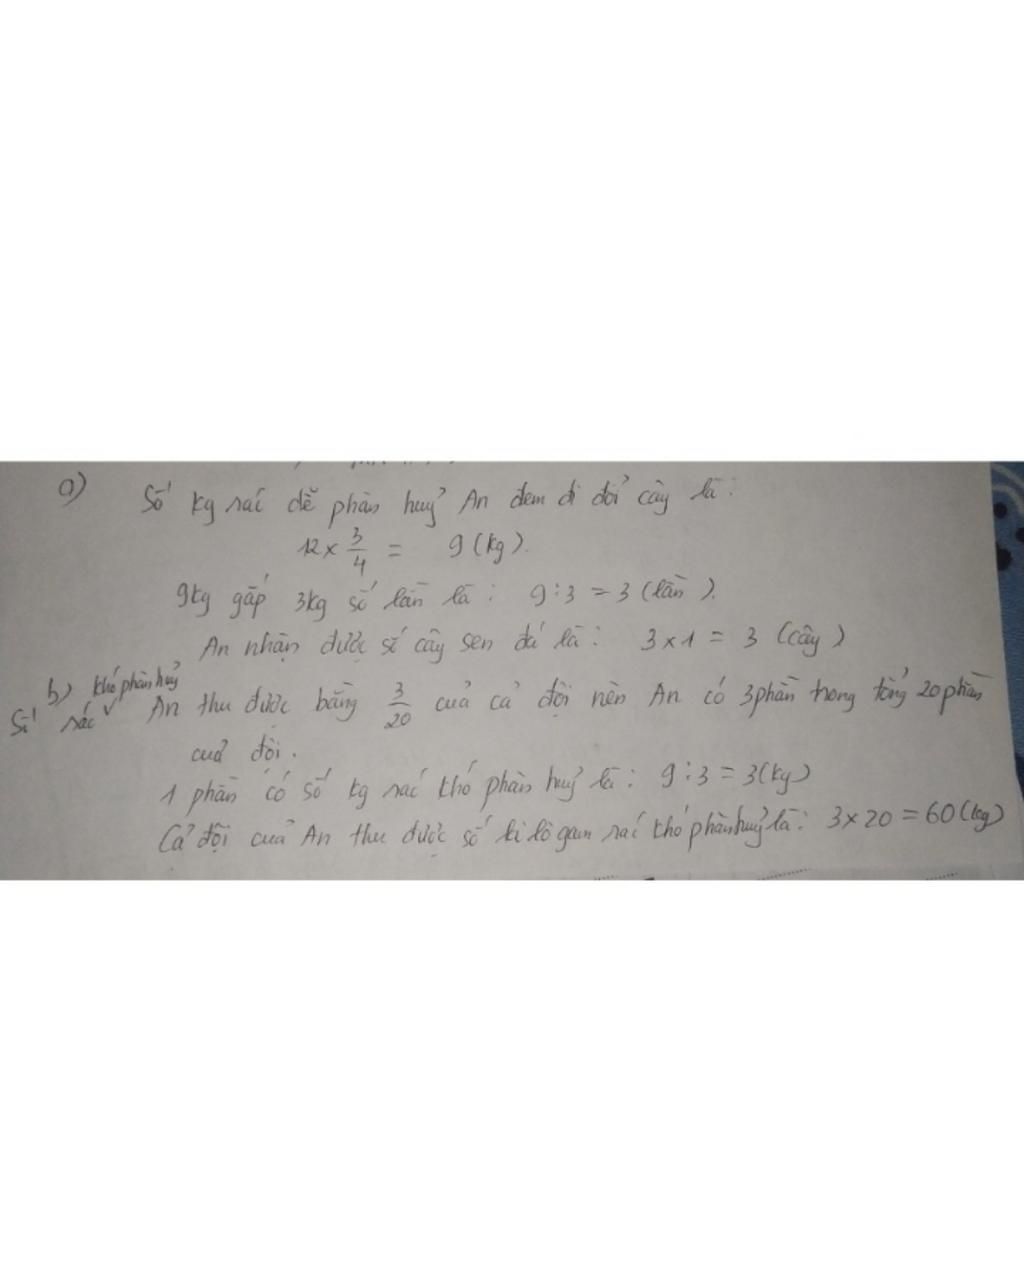 a) Số kg rác dễ phân huỷ An đem đi đổi cây là:
12 x 3/4 = 9 (kg).
9kg gấp 3kg số lần là: 9:3 = 3 (lần).
An nhận được số cây sen đá là: 3 x 1 = 3 (cây)
b) Số rác khó phân huỷ An thu được bằng 3/20 của cả đội nên An có 3 phần trong tổng 20 phần
của đội.
1 phần có số kg rác khó phân huỷ là: 9:3 = 3 (kg)
Cả đội của An thu được số ki lô gam rác khó phân huỷ là: 3 x 20 = 60 (kg)